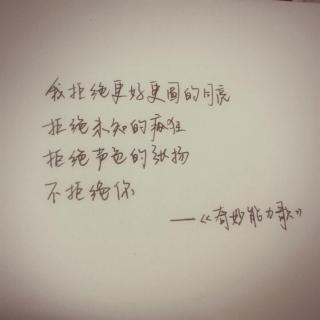 我拒绝更好更圆的月亮
拒绝未知的疯狂
拒绝声色的张扬
不拒绝你
——《奇妙能力歌》